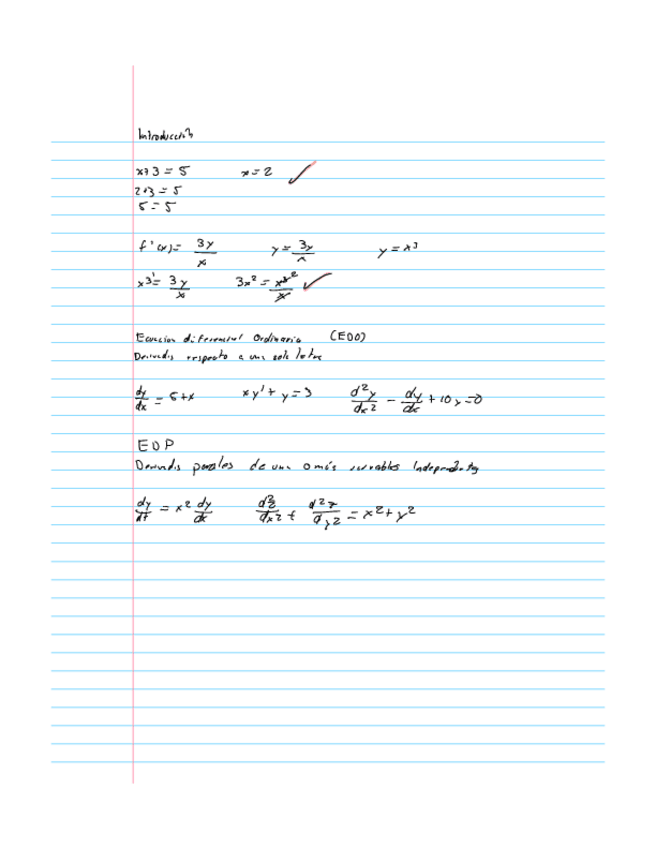 Introducción
x+3 = 5 x = 2 ✓
2+3 = 5
5 = 5
f'(x) = 3y/x y = 3y/x y = x3
x3' = 3y/x 3x² = x3²/x ✓
Ecuacion diferencial Ordinaria (EDO)
Derivadas respecto a una sola
dy/dx = 5+x xy' + y = 3 d²y/dx² - dy/dx + 10y = 0
EDP
Derivadas de una o más variables Independientes
dy/dt = x² dy/dx d²z/dx² + d²z/dy² = x²+y²